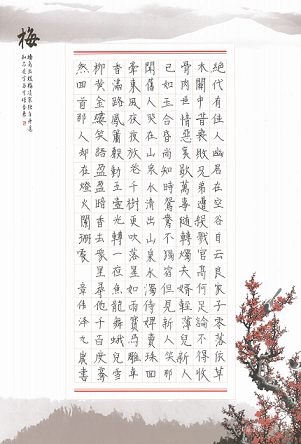 梅
墙角数枝梅凌寒独自开遥
知不是雪为有暗香来
絕代有佳人幽居在空谷自云良家子零落依草
木關中昔喪敗兄弟遭殺戮官高何足論不得收
骨肉世情惡衰歇萬事隨轉燭夫婿輕薄兒新人
已如玉合昏尚知時鴛鴦不獨宿但見新人笑那
聞舊人哭在山泉水清出山泉水濁侍婢賣珠回
牽東風夜夜放花千樹更吹落星如雨寶馬雕車
香滿路鳳簫聲動玉壺光轉一夜魚龍舞蛾兒雪
柳黃金縷笑語盈盈暗香去眾里尋他千百度驀
然回首那人却在燈火闌珊處 章偉澤九歲書